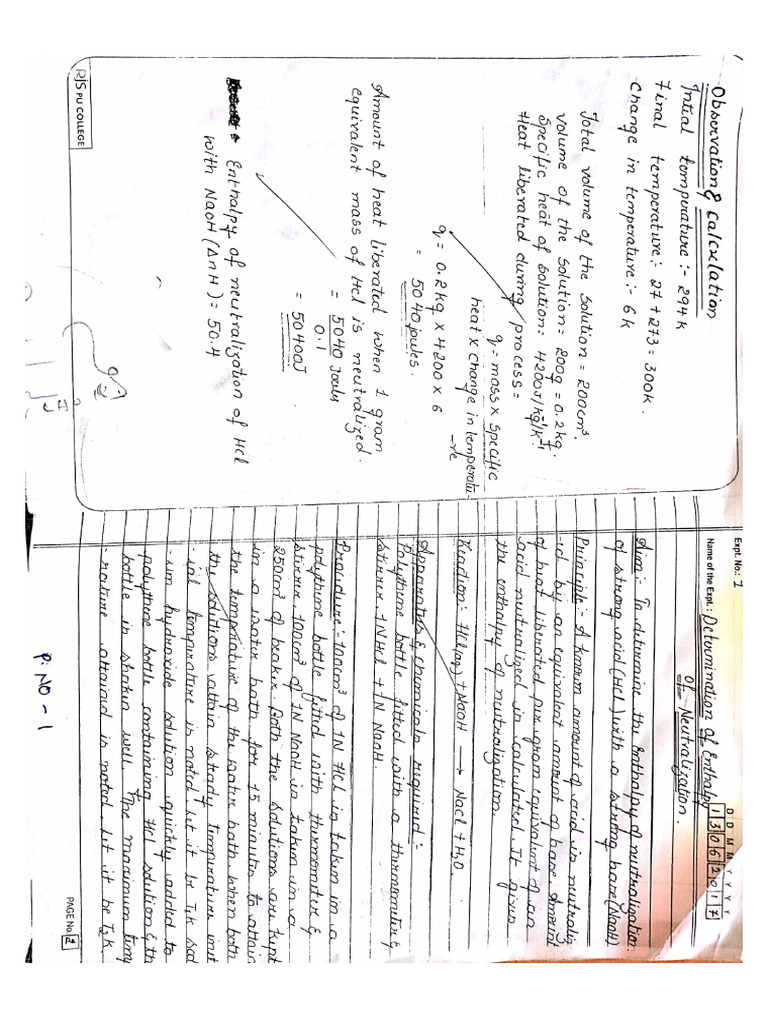 Observation & Calculation
Intial temperature :- 294k
Final temperature :- 27 + 273 = 300k.
Change in temperature :- 6k
Total volume of the solution = 200cm³.
Volume of the solution = 200g = 0.2kg.
Specific heat of solution = 4200J/kg⁻¹/k⁻¹
Heat liberated during process =
q = mass x specific
heat x change in temperatu
-re
q = 0.2kg x 4200 x 6
= 5040 joules.
Amount of heat liberated when 1 gram
equivalent mass of Hcl is neutralized.
= 5040 Joules
0.1
= 50400J
Enthalpy of neutralization of Hcl
with NaOH (ΔnH) = 50.4
RJS PU COLLEGE
Expt. No.: 1
D D M M Y Y Y Y
1 3 0 6 2 0 1 7
Name of the Expt.: Determination of Enthalpy
of Neutralization.
Aim:- To determine the Enthalpy of neutralization
of strong acid (Hcl) with a strong base (NaOH)
Principle:- A known amount of acid is neutraliz
-ed by an equivalent amount of base. Amount
of heat liberated per gram equivalent of an
acid neutralized is calculated. It gives
the enthalpy of neutralization
Reaction:- Hcl(aq) + NaOH → Nacl + H₂O.
Apparatus & chemicals required:-
Polythene bottle fitted with a thermometer &
stirrer, 1NHcl + 1N NaOH.
Procedure:- 100cm³ of 1N Hcl is taken in a
polythene bottle fitted with thermometer &
stirrer. 100cm³ of 1N NaOH is taken in a
250cm³ of beaker. Both the solutions are kept
in a water bath for 15 minutes to attain
the temperature of the water bath. when both
the solutions attain steady temperature init
-ial temperature is noted. let it be T₁K sod
-ium hydroxide solution quickly added to
polythene bottle containing Hcl solution & th
bottle is shaken well. The maximum temp
-rature attained is noted. let it be T₂K.
PAGE No. 1
P. NO - 1